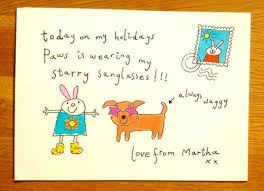 today on my holidays
Paws is wearing my
starry sunglasses!!!
always
waggy
love from Martha
xx